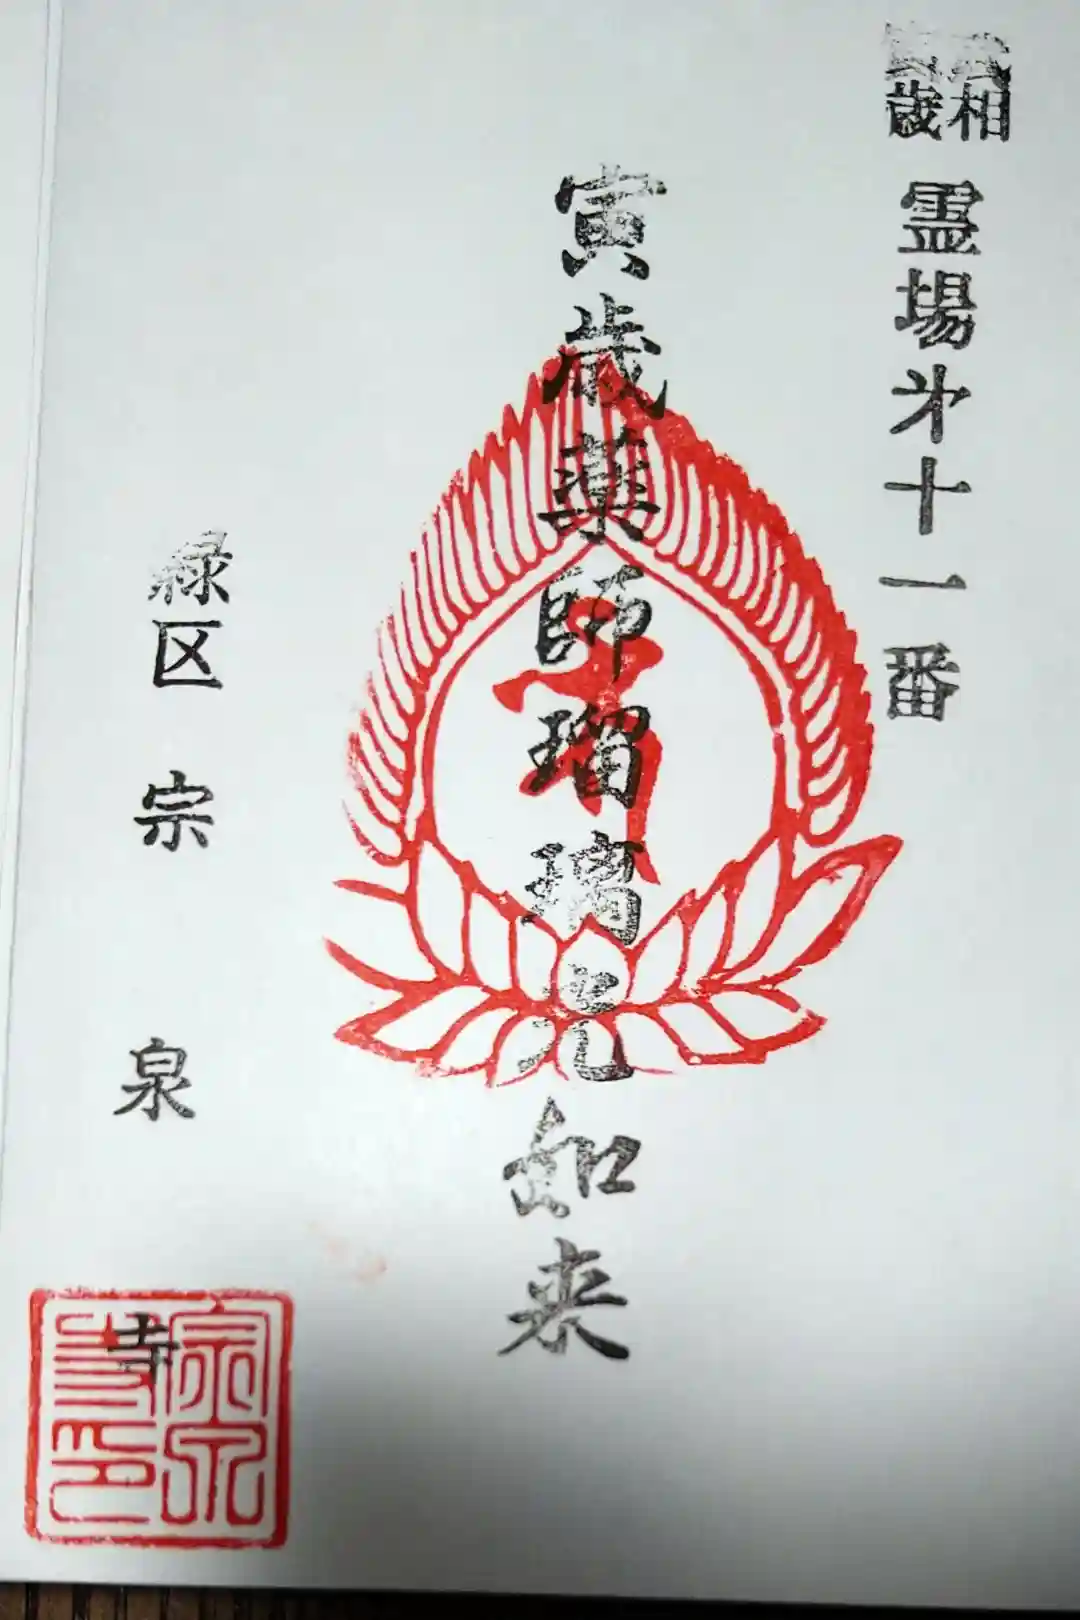 相
歳
霊場㐧十一番
寅歳薬師瑠璃光如来
緑区 宗泉寺
宗泉寺印